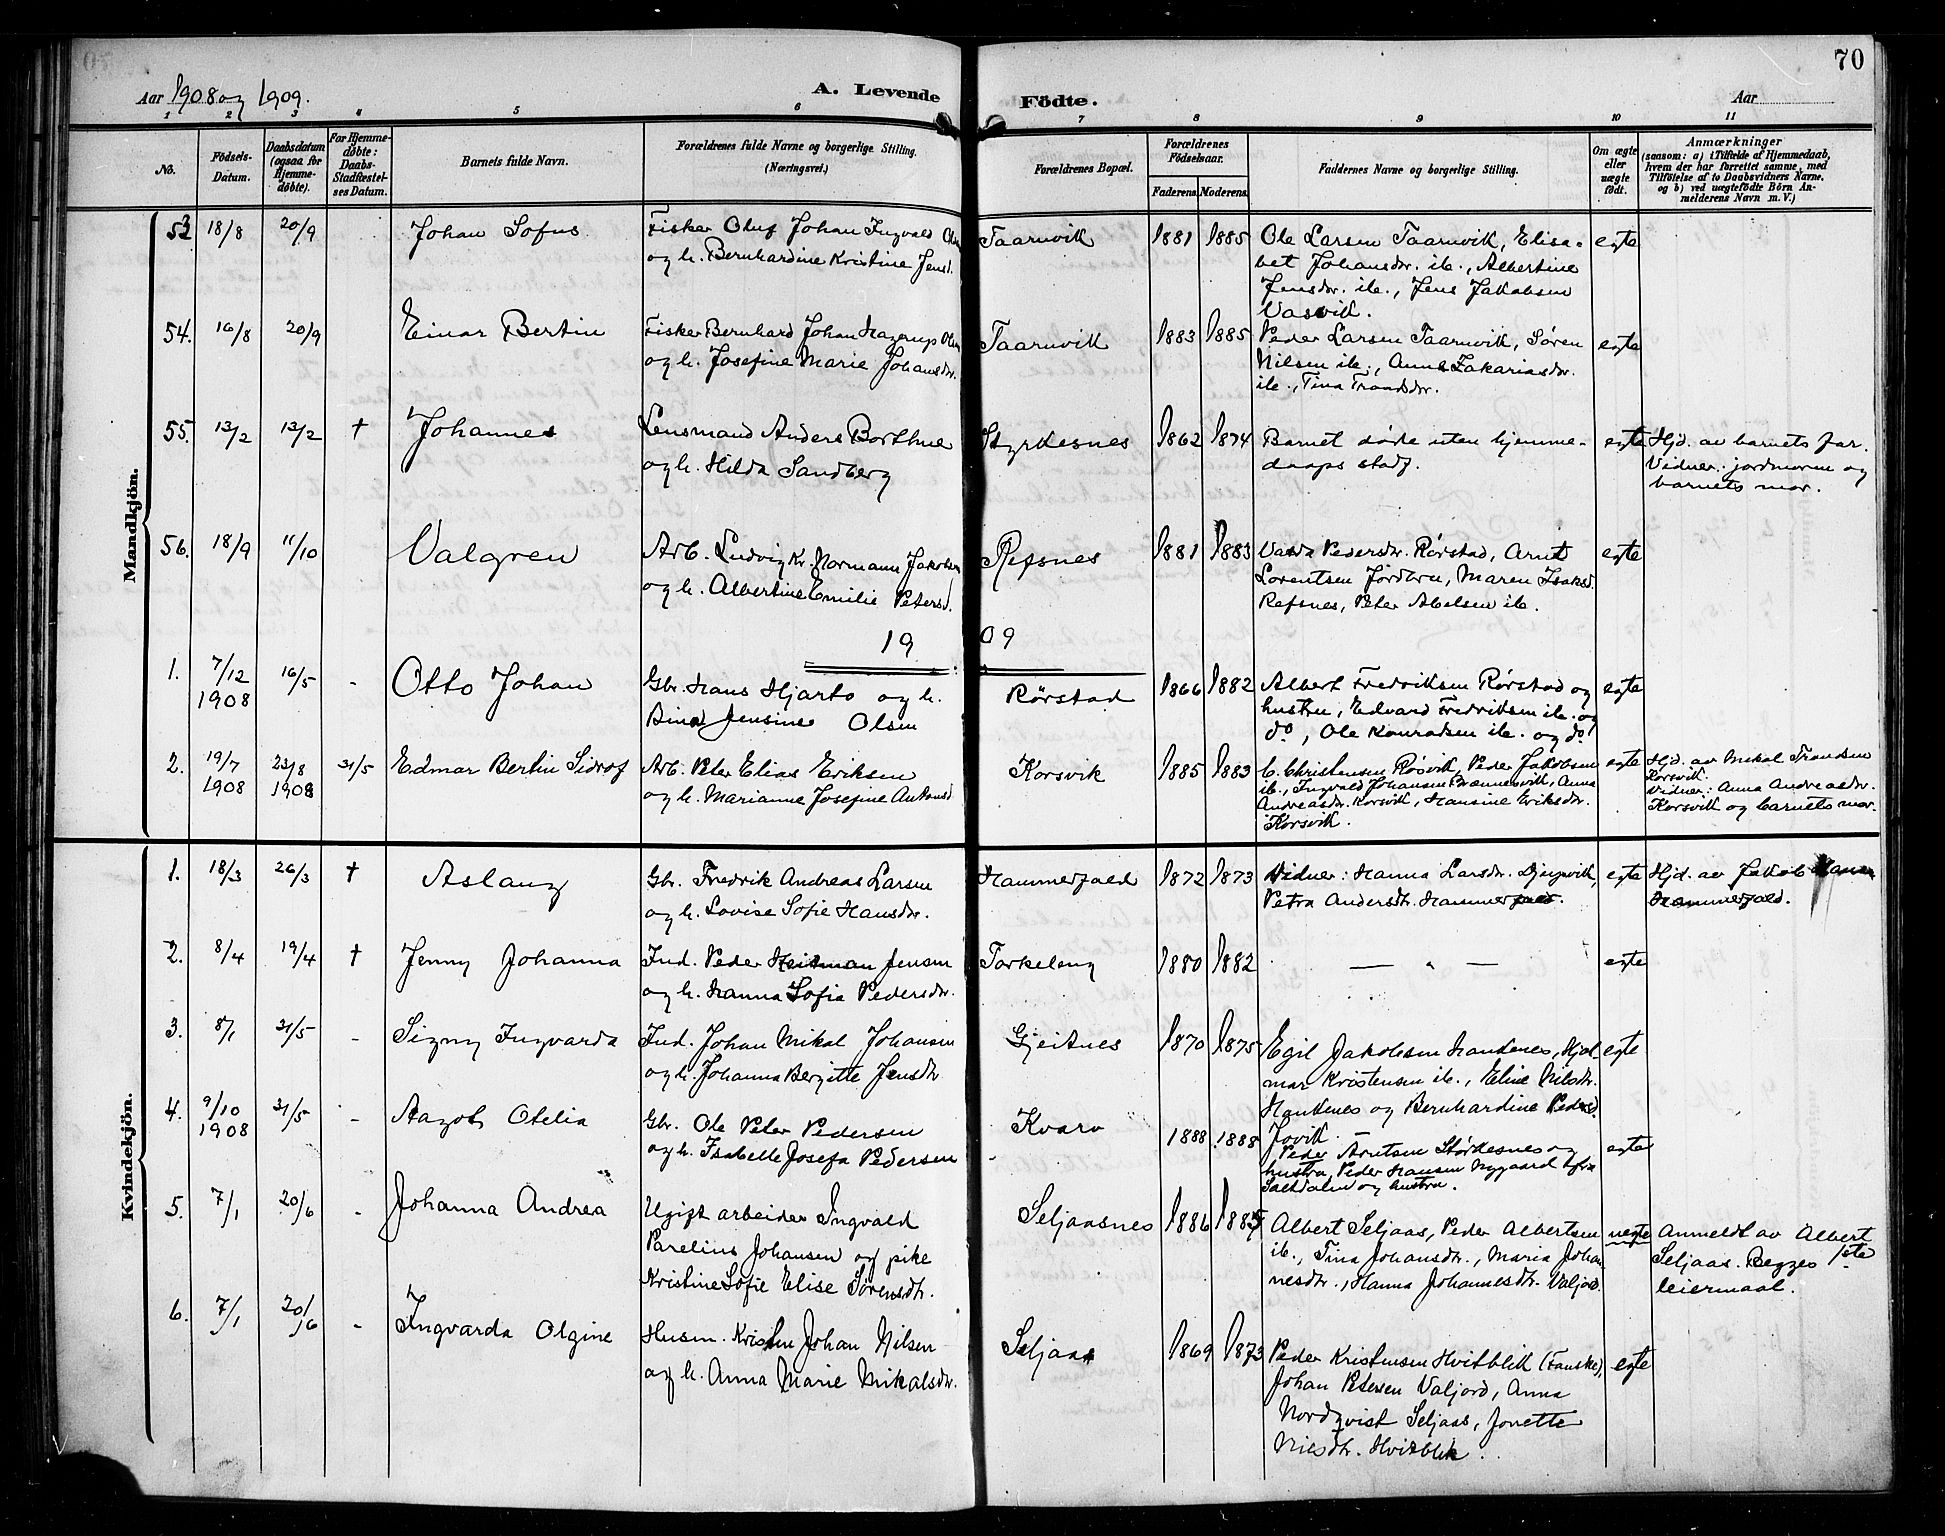 70
Aar 1908 og 1909.
A. Levende Födte.
Aar
1 2 3 4 5 6 7 8 9 10 11
No.
Födsels-
Datum.
Daabsdatum
(ogsaa for
Hjemme-
döbte).
For Hjemme-
döbte:
Daabs-
Stadfæstel-
ses Datum.
Barnets fulde Navn.
Forældrenes fulde Navne og borgerlige Stilling.
(Næringsvei.)
Forældrenes Bopæl.
Forældrenes
Födselsaar.
Faderens. Moderens.
Faddernes Navne og borgerlige Stilling.
Om ægte
eller
uægte
födt.
Anmærkninger
(saasom: a) i Tilfælde af Hjemmedaab,
hvem der har forrettet samme, med
Tilföielse af to Daabsvidners Navne,
og b) ved uægtefödte Börn An-
melderens Navn m. V.)
Mandkjön.
53 18/8 20/9 Johan Sofus
Fisker Oluf Johan Ingvald Olsen
og h. Bernhardine Kristine Jensd.
Taarnvik 1881 1885
Ole Larsen Taarnvik, Elisa-
bet Johansdr. ib., Albertine
Jensdr. ib., Jens Jakobsen
Vasvik.
egte
54. 16/8 20/9 Einar Bertin
Fisker Bernhard Johan Hagerup Olsen
og h. Josefine Marie Johansdr.
Taarnvik 1883 1885
Peder Larsen Taarnvik, Søren
Nilsen ib., Anna Zakariasdr.
ib., Tina Traadsdr.
egte
55. 13/2 13/2 † Johannes
Lensmand Anders Borthne
og h. Hilda Sandberg
Styrkesnes 1862 1874
Barnet døde uten hjemme-
daaps stadf.
egte
Hjd. av barnets far.
Vidner: jordmoren og
barnets mor.
56. 18/9 11/10 Valgren
Arb. Ludvig Kr. Normann Jakobsen
og h. Albertine Emilie Petersd.
Refsnes 1881 1883
Valda Pedersdr. Rørstad, Arnt
Lorentsen Jordbru, Maren Isaksd.
Refsnes, Peter Abelsen ib.
egte
1909
1. 7/12 1908 16/5 - Otto Johan
Gbr. Hans Hjartø og h.
Bina Jensine Olsen
Rørstad 1866 1882
Albert Fredriksen Rørstad og
hustru, Edvard Fredriksen ib. og
do, Ole Konradsen ib. og do.
egte
2. 19/7 1908 23/8 1908 31/5 Edmar Bertin Sidrof
Arb. Peter Elias Eriksen
og h. Marianne Josefine Antonsd.
Korsvik 1885 1883
C. Christensen Røsvik, Peder Jakobsen
ib., Ingvald Johansen, Anna
Andreasdr. Korsvik, Hansine Eriksdr.
Korsvik.
egte
Hjd. av Mikal Transen
Korsvik.
Vidner: Anna Andreasdr.
Korsvik og barnets mor.
Kvindekjön.
1. 18/3 26/3 † Aslaug
Gbr. Fredrik Andreas Larsen
og h. Lovise Sofie Hansdr.
Hammerfald 1872 1873
Vidner: Hanna Larsdr. Djupvik,
Petra Andersdr. Hammerfald.
egte
Hjd. av Jakob Hansen
Hammerfald.
2. 8/4 19/4 † Jenny Johanna
Ind. Peder Heitman Jensen
og h. Hanna Sofia Pedersdr.
Torkeleng 1880 1882
— " —
egte
3. 8/1 31/5 - Signy Ingvarda
Ind. Johan Mikal Johansen
og h. Johanna Bergitte Jensdr
Gjeitnes 1870 1875
Egil Jakobsen Handenes, Hjal-
mar Kristensen ib., Eline Nilsdr.
Handenes og Bernhardine Pedersd.
Jovik.
egte
4. 9/10 1908 31/5 - Aagot Otelia
Gbr. Ole Peter Pedersen
og h. Isabelle Josefa Pedersen
Kvarv 1888 1888
Peder Arntsen Størkesnes og
hustru, Peder Hansen Nygaard fra
Saltdalen og hustru.
egte
5. 7/1 20/6 - Johanna Andrea
Ugift arbeider Ingvald
Parelius Johansen og pike
Kristine Sofie Elise Sørensdr.
Seljaasnes 1886 1885
Albert Seljaas, Peder Albertsen
ib., Tina Johansdr., Maria Johan-
nesdr., Hanna Johannesdr. Valjord.
uegte
Anmeldt av Albert
Seljaas. Begges 1ste
leiermaal.
6. 7/1 20/6 - Ingvarda Olgine
Husm. Kristen Johan Nilsen
og h. Anna Marie Mikalsdr.
Seljaas 1869 1873
Peder Kristensen Hvitblik (Fauske),
Johan Petersen Valjord, Anna
Nordqvist Seljaas, Jonette
Nilsdr. Hvitblik.
egte